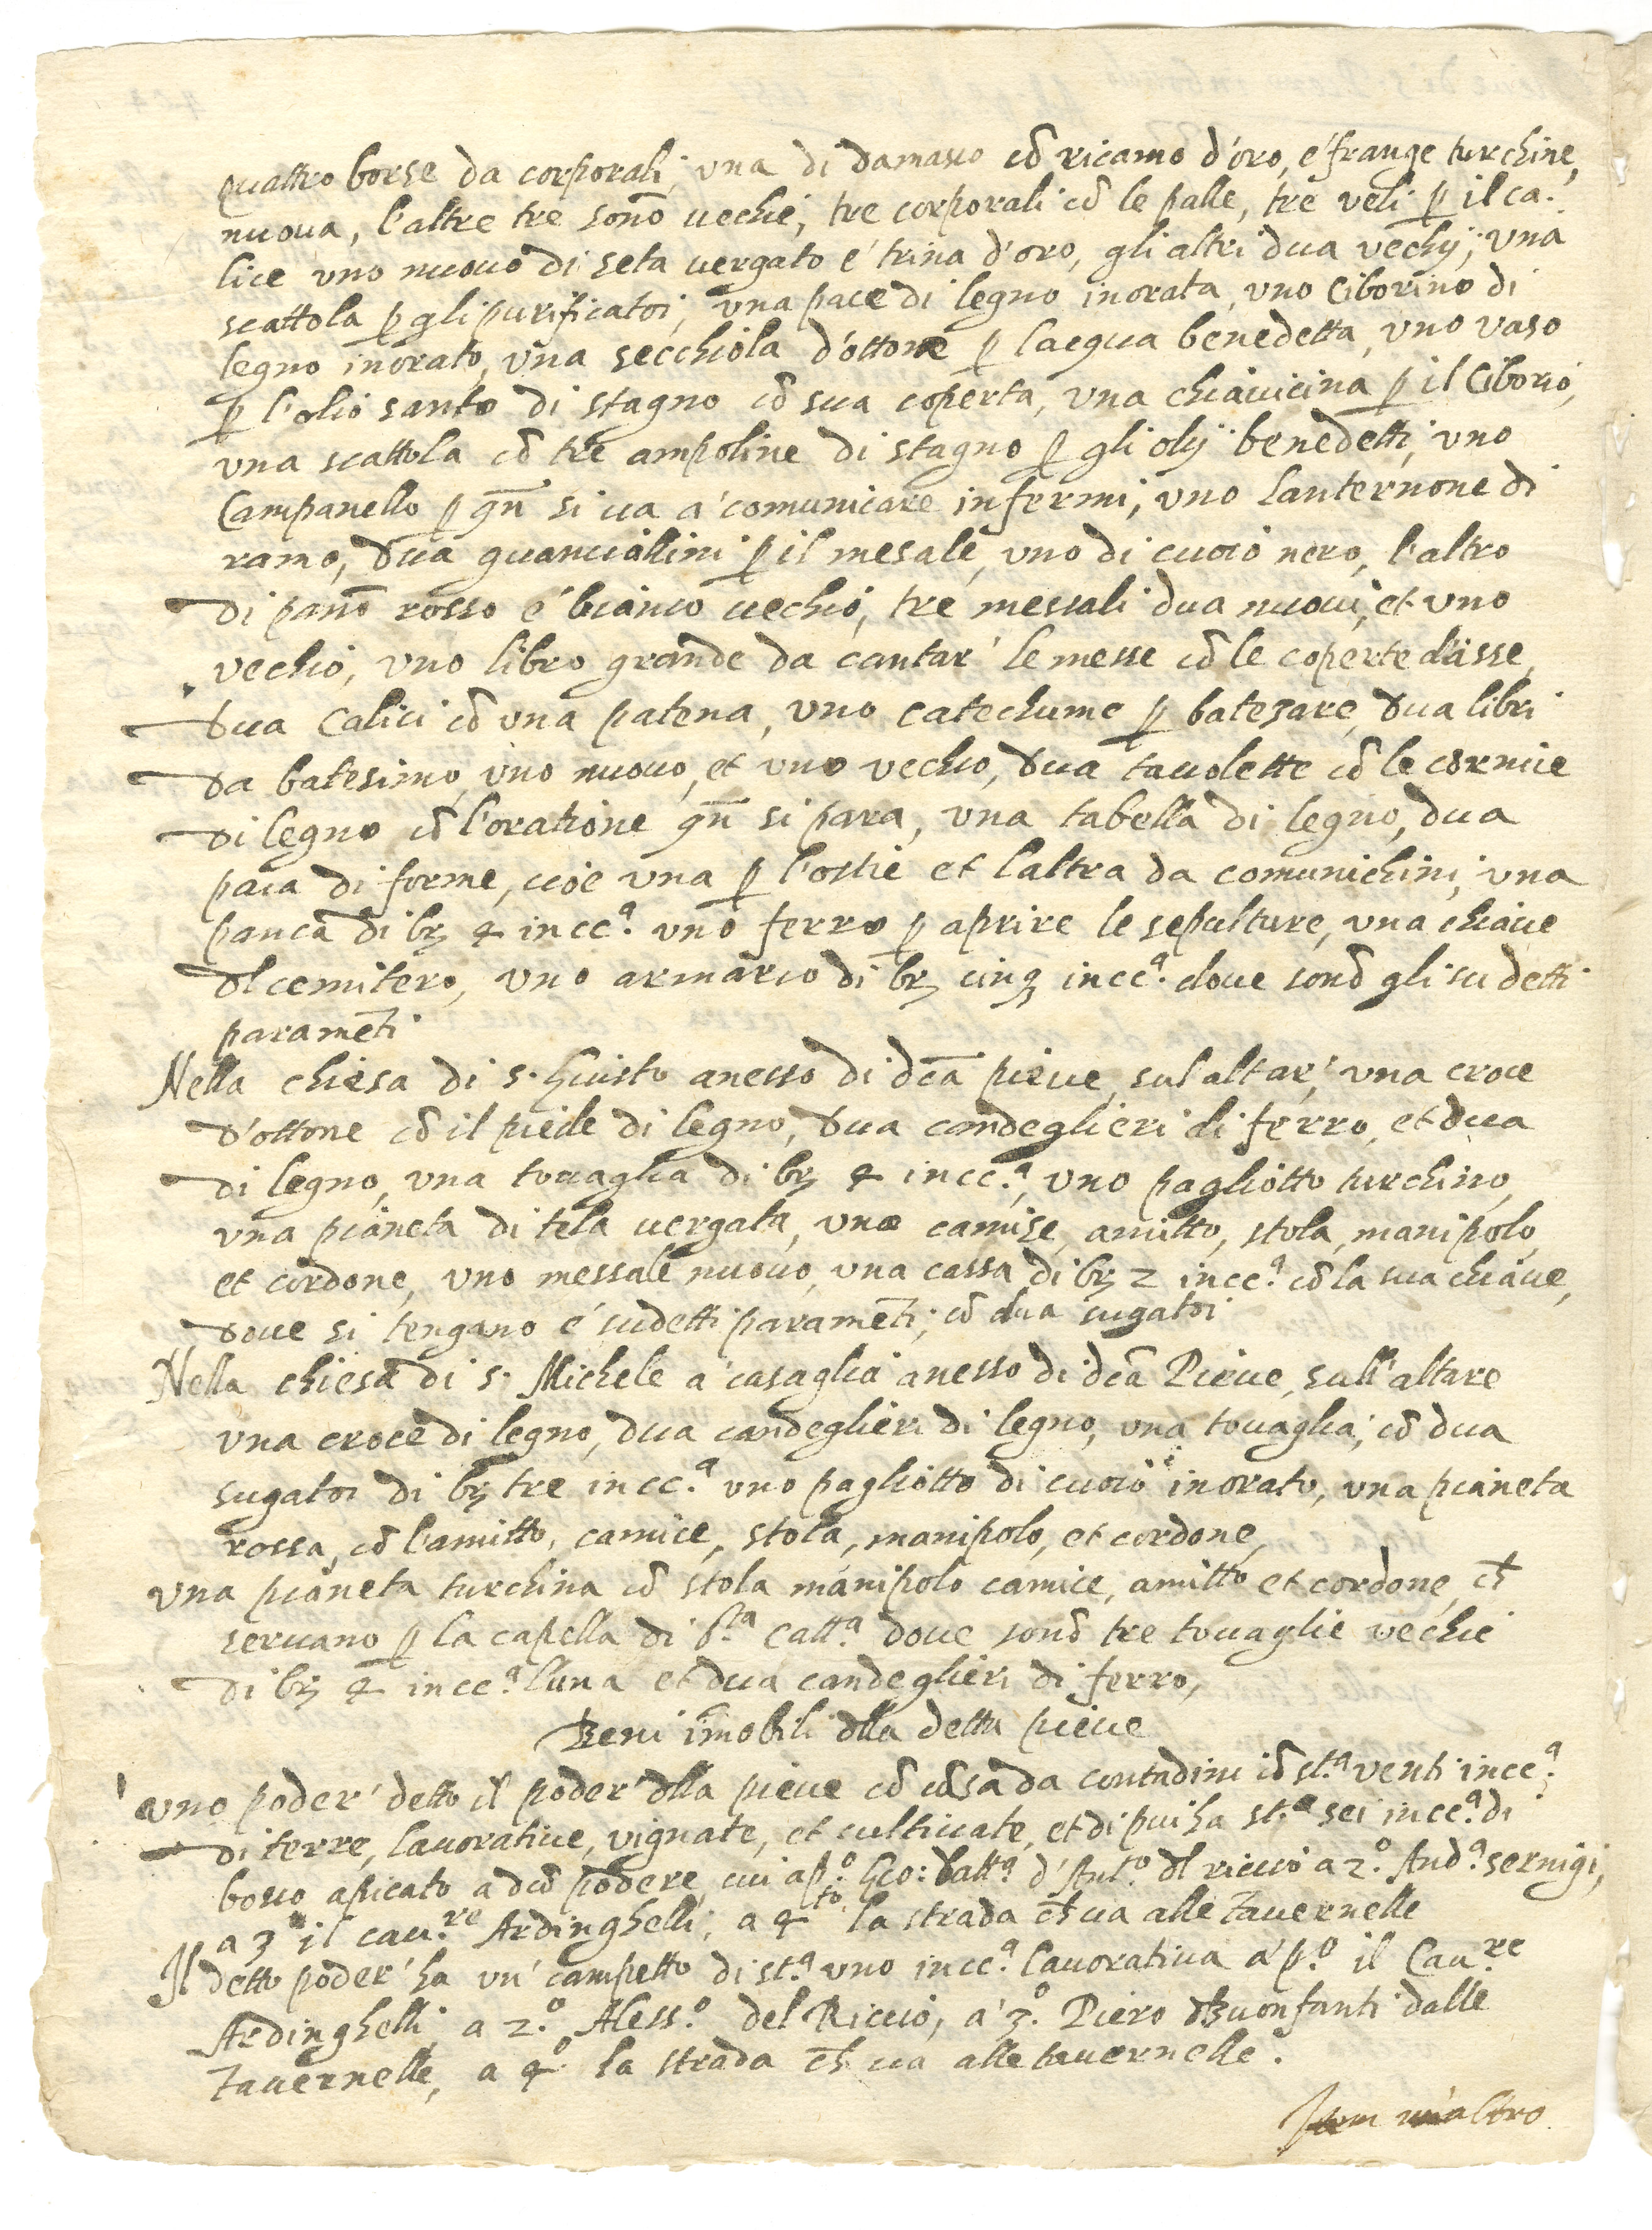 quattro borse da corporali, una di damasco cō ricamo d'oro, e' frange turchine,
nuova, l'altre tre sonō uechie, tre corporali cō le palle, tre veli p il ca-
lice uno nuouo di seta uergato e' trina d'oro, gli altri dua vechij, una
scattola p gli purificatoi, una pace di legno inorata, uno Ciborino di
legno inorato, una secchiola d'ottone p l'acqua benedetta, uno vaso
p l'olio santo di stagno cō sua coperta, una chiavicina p il Ciborio,
una scattola cō tre ampoline di stagno p gli olij benedetti, uno
Campanello p qñ si ua a' comunicare infermi, uno lanternone di
ramo, dua guanciallini p il mesale, uno di cuoio nero, l'altro
di panō rosso e' bianco uechio, tre messali dua nuoui, et uno
vechio, uno libro grande da cantar' le messe cō le coperte d'asse,
dua Calici cō una patena, uno catechumo p batezare, dua libri
da batesimo, uno nuouo, et uno vechio, dua tauolette cō le cornice
di legno cō l'oratione qñ si para, una tabella di legno, dua
paia di forme, cioe una p l'ostie et l'altra da comunichini, una
panca di br̃ 4 incc.ª uno ferro p aprire le sepulture, una chiaue
dl cemitero, uno armario di br̃ cinq incc.ª doue sonō gli su detti
paramēti
Nella chiesa di s. Giusto anesso di dc̃a pieue, sul altar', una croce
d'ottone cō il piede di legno, dua candeglieri di ferro, et dua
di legno, una touaglia di br̃ 4 incc.ª, uno pagliotto turchino,
una pianeta di tela uergata, uno camise, amitto, stola, manipolo,
et cordone, uno messale nuouo, una cassa di br̃ 2 incc.ª cō la sua chiaue,
doue si tengano e' sudetti paramēti, cō dua sugatoi
Nella chiesa di s. Michele a' casaglia anesso di dc̃a Pieue, sull'altare
una croce di legno, dua candeglieri di legno, una touaglia, cō dua
sugatoi di br̃ tre incc.ª uno pagliotto di cuoio inorato, una pianeta
rossa, cō l'amitto, camice, stola, manipolo, et cordone,
una pianeta turchina cō stola manipolo camice, amitto et cordone, ch̃
seruano p la capella di s.ta Catt.ª doue sonō tre touaglie vechie
di br̃ 4 incc.ª l'una et dua candeglieri di ferro,
Beni im̃obili dlla detta pieue
uno poder' detto il poder' dlla pieue cō casa da contadini cō st.ª venti incc.ª
di terre, lauoratiue, vignate, et cultiuate, et di piu ha st.ª sei incc.ª di
bosco apicato a dcō podere cui a p.º Gio: Batt.ª d'Ant.º dl riccio a 2.º And.ª sernigi,
a 3º il cau.re Ardinghelli, a 4.to la strada ch̃ ua alle Tauernelle
Il detto poder' ha un' campetto di st.ª uno incc.ª lauoratiua a' p.º il Cau.re
Ardinghelli a 2.º Aless.º del Riccio, a' 3.º Piero Buonfanti dalle
Tauernelle, a 4º la strada ch̃ ua alle tauernelle.
Item un'altro